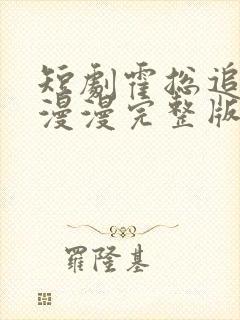 短劇霍總追
漫漫完整版
羅隆基